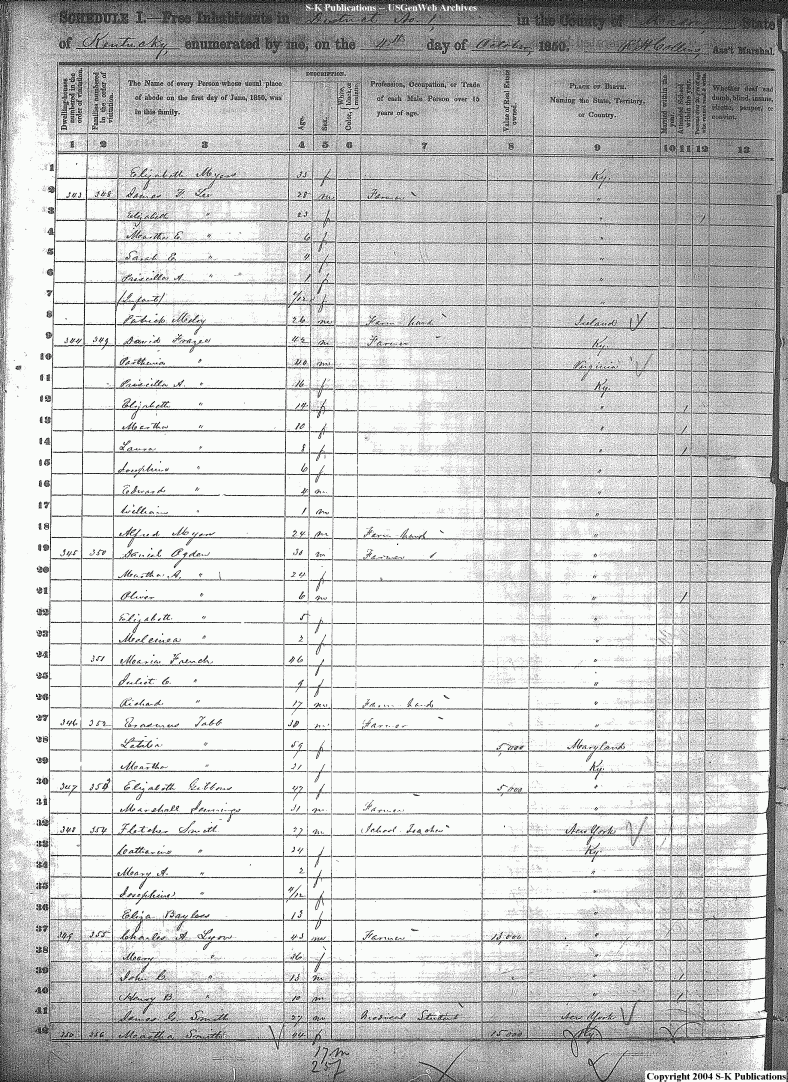 S-K Publications -- USGenWeb Archives
SCHEDULE I.- Free Inhabitants in District No. 1, in the County of Mason, State
of Kentucky, enumerated by me, on the 11th day of October, 1850. R H Collins, Ass't Marshal.
DESCRIPTION.
Dwelling-houses numbered in the order of visitation. Families numbered in the order of visitation. The Name of every Person whose usual place of abode on the first day of June, 1850, was in this family. Age. Sex. White, black, or mulatto. Color, Profession, Occupation, or Trade of each Male Person over 15 years of age. Value of Real Estate owned. PLACE OF BIRTH. Naming the State, Territory, or Country. Married within the year. Attended School within the year. Whether deaf and dumb, blind, insane, idiotic, pauper, or convict.
1 2 3 4 5 6 7 8 9 10 11 12 13
1 Elizabeth Myers 33 f Ky.
2 343 348 James F. Lee 28 m Farmer "
3 Elizabeth " 23 f " 1
4 Martha E. " 6 f "
5 Sarah E. " 4 f "
6 Priscilla A. " 1 f "
7 (Infant) /12 f "
8 Patrick 26 m Farm hand Ireland
9 344 349 David Frazee 42 m Farmer Ky.
10 Parthenia " 40 m Virginia
11 Priscilla A. " 16 f Ky.
12 Elizabeth " 14 f " 1
13 Martha " 10 f " 1
14 Laura " 8 f " 1
15 Josephine " 6 f "
16 Edward " 4 m "
17 William " 1 m "
18 Alfred Myers 24 m Farm hand "
19 345 350 Daniel Ogden 30 m Farmer "
20 Martha A. " 24 f "
21 Oliver " 6 m " 1
22 Elizabeth " 5 f "
23 " 2 f "
24 351 Maria French 46 f "
25 Juliet C. " 9 f "
26 Richard " 17 m Farm hand "
27 346 352 Erasmus Tabb 38 m Farmer "
28 Letitia " 59 f 5,000 Maryland
29 Martha " 31 f Ky.
30 347 353 Elizabeth Gibbons 47 f 5,000 "
31 Marshall Jennings 31 m Farmer "
32 348 354 Fletcher Smith 27 m School Teacher New York
33 Catharine " 34 f Ky
34 Mary A. " 2 f "
35 Josephine " /12 f "
36 Eliza Bayless 13 f "
37 349 355 Charles A. Lyon 43 m Farmer 13,000 "
38 Mary " 36 f "
39 John C. " 13 m " 1
40 Henry B. " 10 m " 1
41 James C. Smith 27 m Medical Student New York
42 350 356 Martha Smith 44 f 15,000 Ky.
17 m
25 f
Copyright 2004 S-K Publications